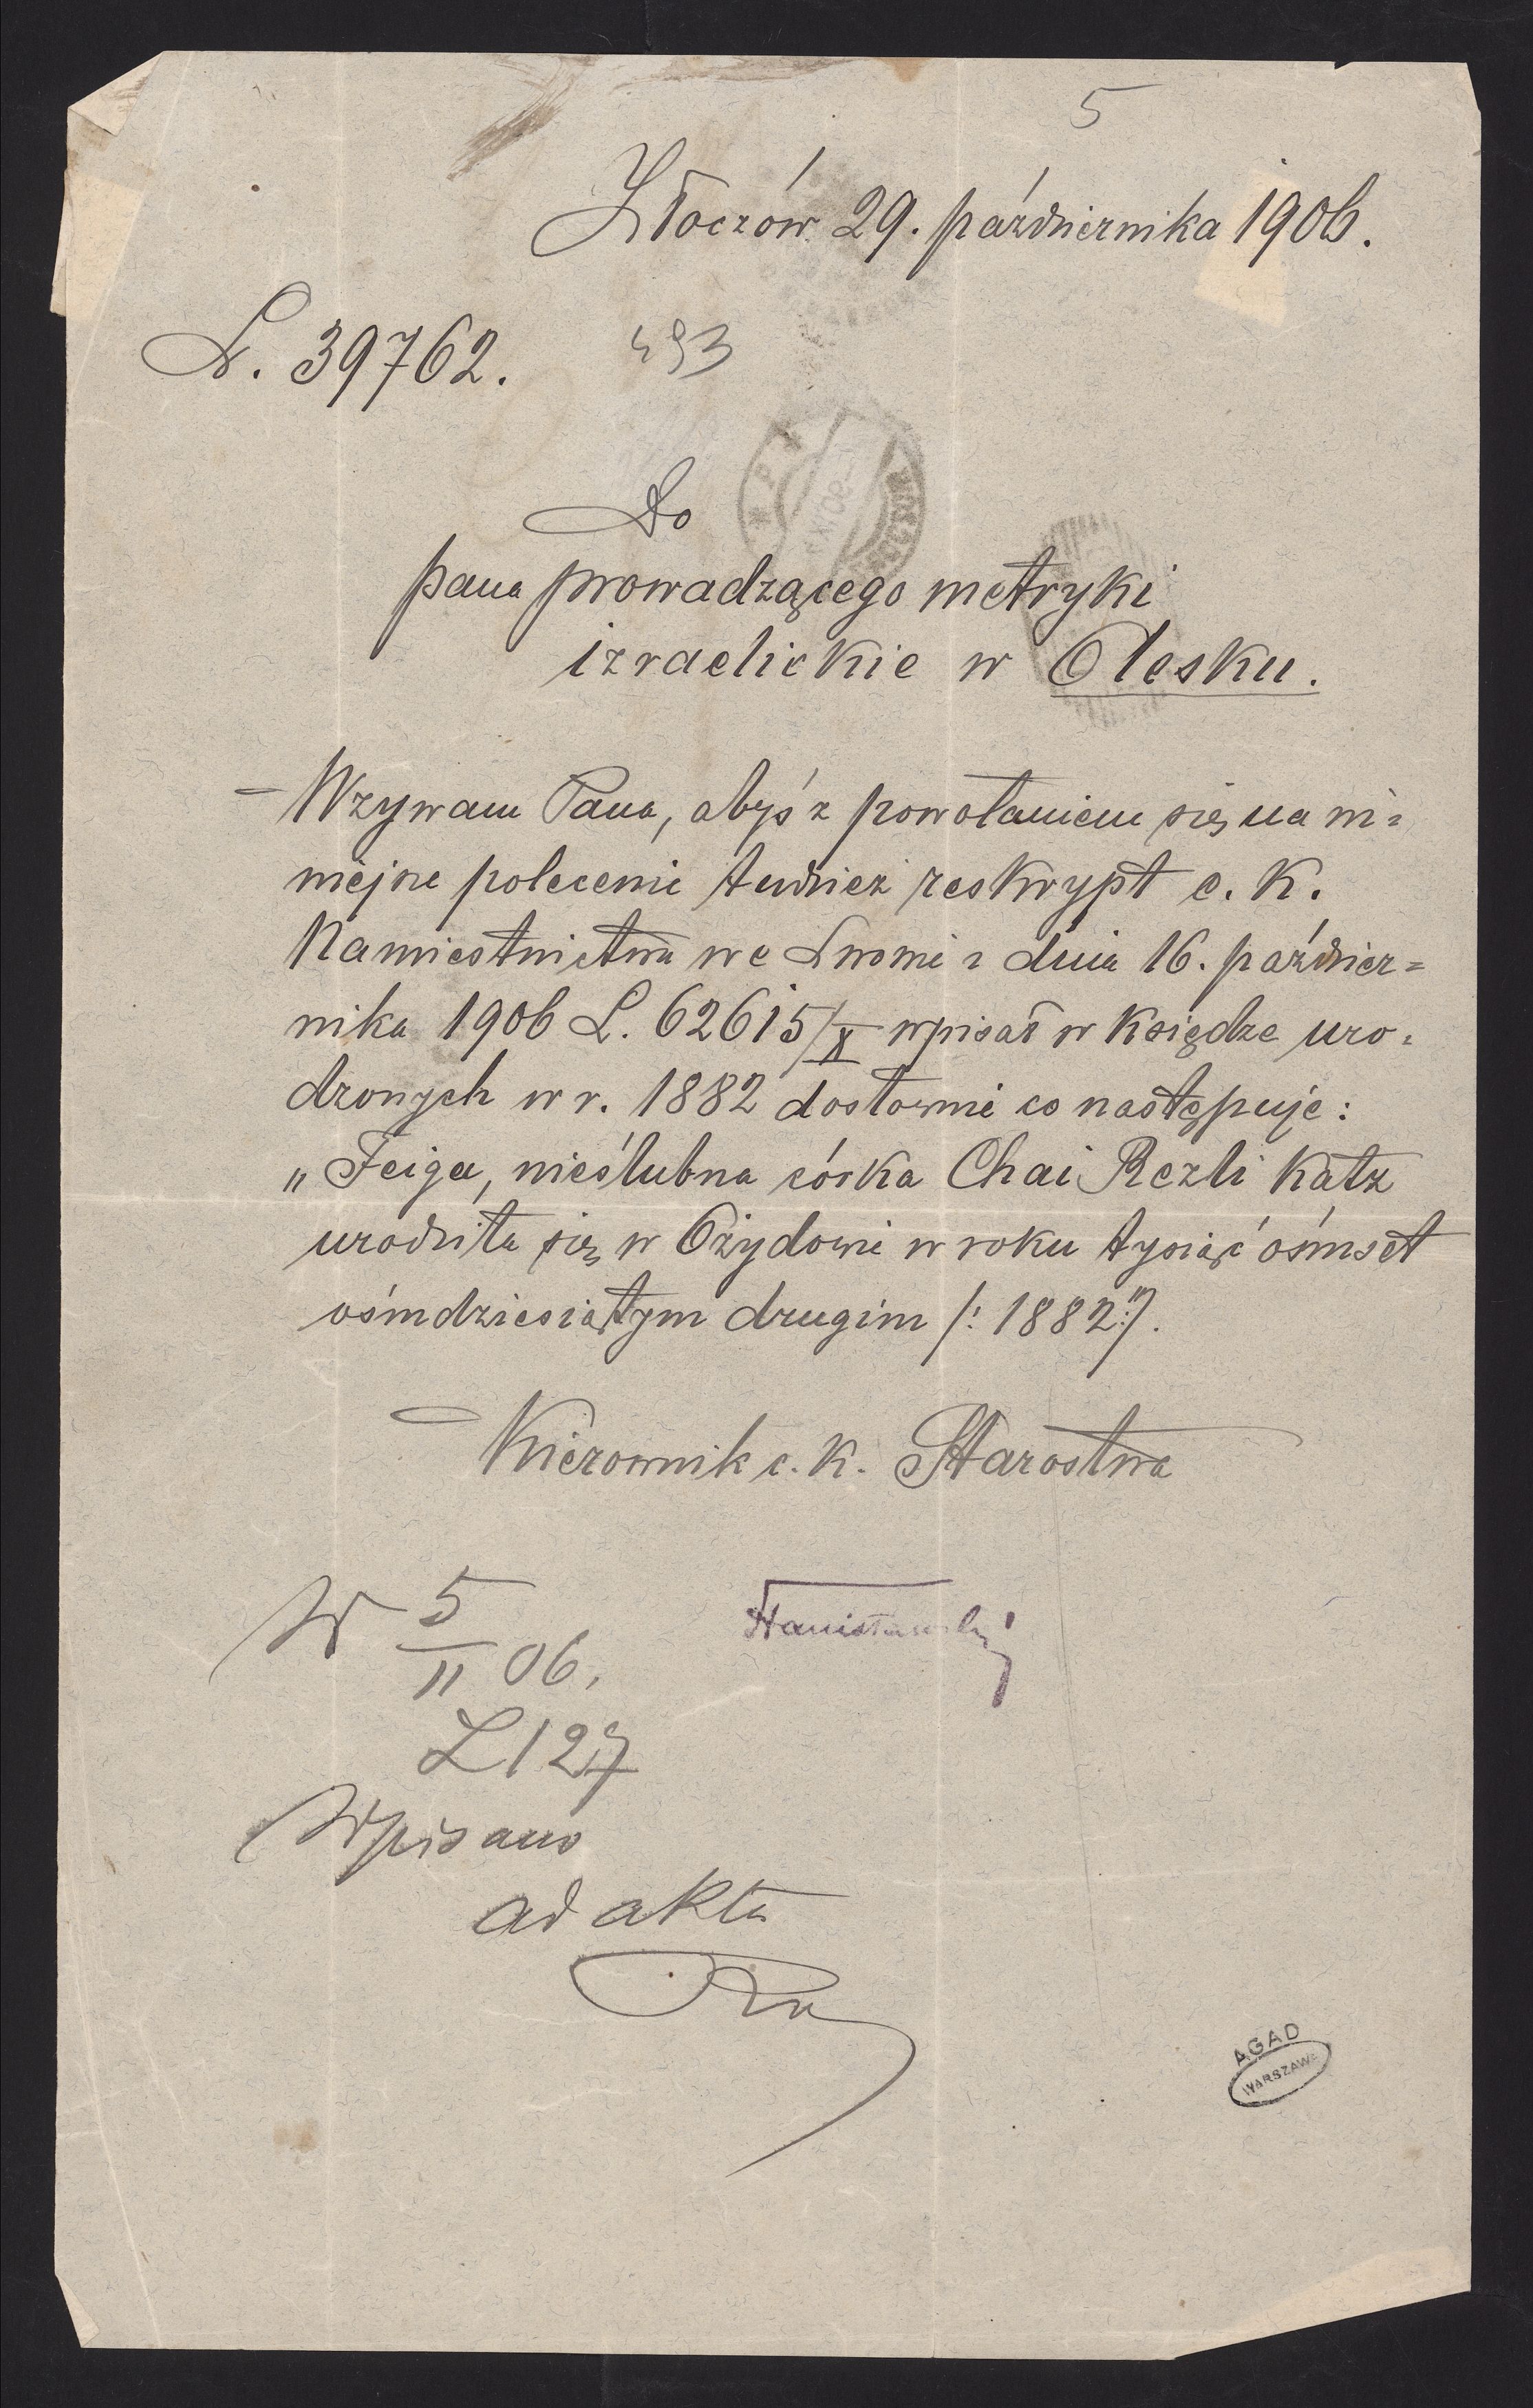 5
Złoczów 29. października 1906.
L. 39762.
493
Do
pana prowadzącego metryki
izraelickie w Olesku.
Wzywam Pana, abyś z powołaniem się na ni=
niejsze polecenie tudzież reskrypt c. k.
Namiestnictwa we Lwowie z dnia 16. paździer=
nika 1906 L. 62615/X wpisał w księdze uro=
dzonych w r. 1882 dosłownie co następuje:
„Feiga, nieślubna córka Chai Rezli Katz
urodziła się w Ożydowie w roku tysiąć ośmset
ośmdziesiątym drugim /: 1882:/".
Kierownik c. k. Starostwa
Stanisławski
5
11 06.
L 127
Wpisano
ad akta
AGAD
WARSZAWA